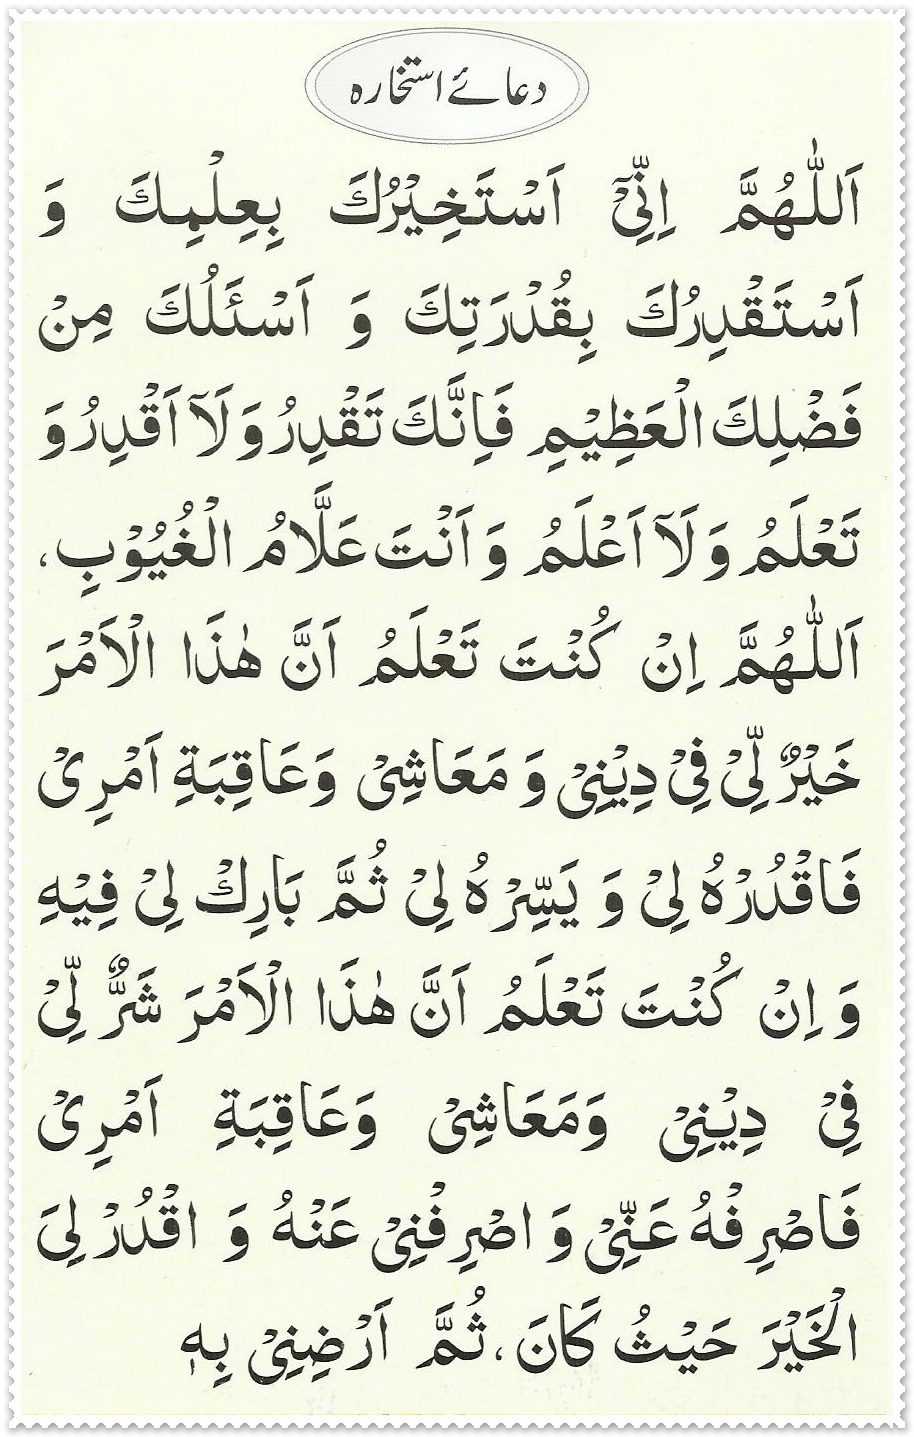 دعائے استخارہ
اَللّٰهُمَّ اِنِّیْۤ اَسْتَخِیْرُكَ بِعِلْمِكَ وَ
اَسْتَقْدِرُكَ بِقُدْرَتِكَ وَ اَسْئَلُكَ مِنْ
فَضْلِكَ الْعَظِیْمِ فَاِنَّكَ تَقْدِرُ وَ لَاۤ اَقْدِرُ وَ
تَعْلَمُ وَ لَاۤ اَعْلَمُ وَ اَنْتَ عَلَّامُ الْغُیُوْبِ،
اَللّٰهُمَّ اِنْ كُنْتَ تَعْلَمُ اَنَّ هٰذَا الْاَمْرَ
خَیْرٌ لِّیْ فِیْ دِیْنِیْ وَ مَعَاشِیْ وَعَاقِبَةِ اَمْرِیْ
فَاقْدُرْهُ لِیْ وَ یَسِّرْهُ لِیْ ثُمَّ بَارِكْ لِیْ فِیْهِ
وَ اِنْ كُنْتَ تَعْلَمُ اَنَّ هٰذَا الْاَمْرَ شَرٌّ لِّیْ
فِیْ دِیْنِیْ وَمَعَاشِیْ وَعَاقِبَةِ اَمْرِیْ
فَاصْرِفْهُ عَنِّیْ وَ اصْرِفْنِیْ عَنْهُ وَ اقْدُرْ لِیَ
الْخَیْرَ حَیْثُ كَانَ، ثُمَّ اَرْضِنِیْ بِهٖ